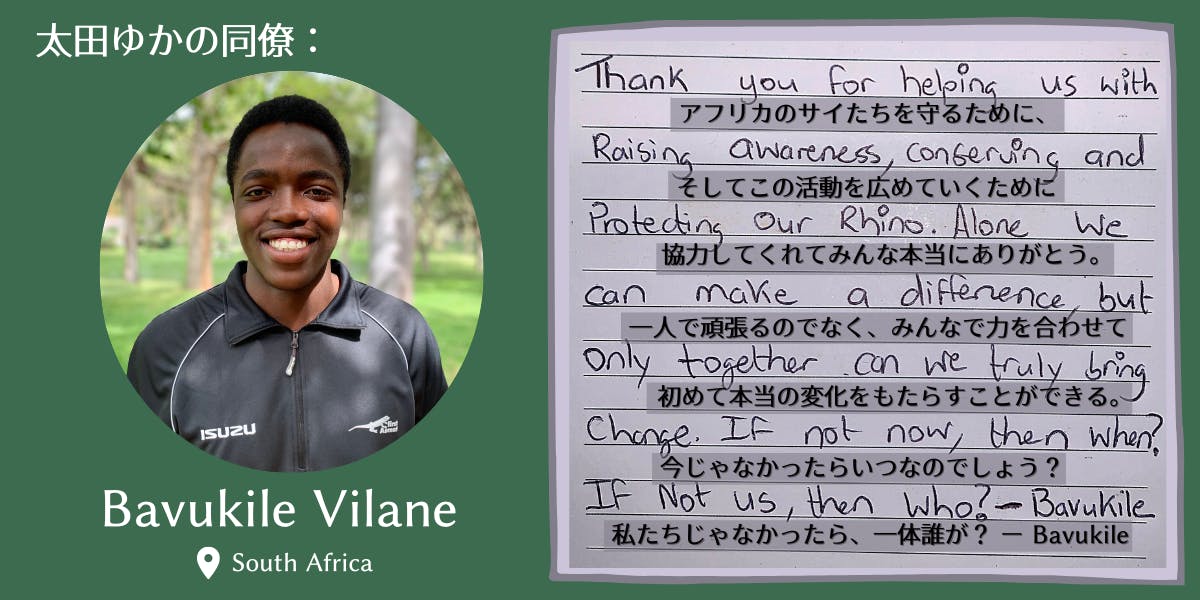 太田ゆかの同僚：
ISUZU
Bavukile Vilane
South Africa
Thank you for helping us with
アフリカのサイたちを守るために、
Raising awareness, conserving and
そしてこの活動を広めていくために
Protecting Our Rhino. Alone We
協力してくれてみんな本当にありがとう。
can make a difference, but
一人で頑張るのでなく、みんなで力を合わせて
only together can we truly bring
初めて本当の変化をもたらすことができる。
Change. If not now, then when?
今じゃなかったらいつなのでしょう？
If Not us, then who? - Bavukile
私たちじゃなかったら、一体誰が？ － Bavukile